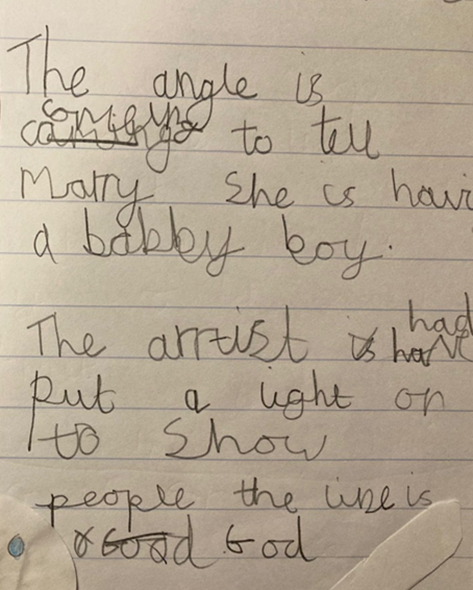 The angle is
comeing to tell
Marry She is havi
a babby boy.
The arrtist is had
Put a light on
to Show
people the line is
God